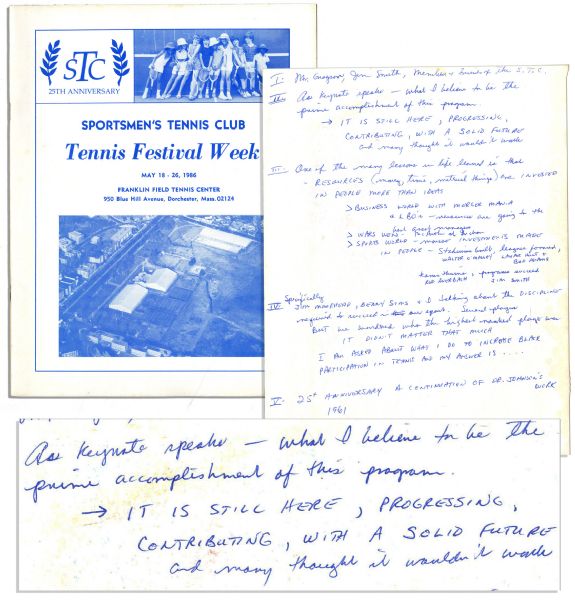 STC
25TH ANNIVERSARY
SPORTSMEN'S TENNIS CLUB
Tennis Festival Week
MAY 18 - 26, 1986
FRANKLIN FIELD TENNIS CENTER
950 Blue Hill Avenue, Dorchester, Mass. 02124
I. Mr. Grayson, Jim Smith, Members & friends of the S.T.C.
II. As Keynote speaker — what I believe to be the
prime accomplishment of this program.
→ IT IS STILL HERE, PROGRESSING,
CONTRIBUTING, WITH A SOLID FUTURE
and many thought it wouldn't work
III. One of the many lessons in life learned is that
- RESOURCES (money, time, material things) are INVESTED
IN PEOPLE MORE THAN IDEAS
> BUSINESS WORLD WITH MERGER MANIA
& LBO's - resources are going to the
best managers
> WARS WON -
> SPORTS WORLD - INVESTMENTS MADE
IN PEOPLE - Stadiums built, leagues formed,
WALTER O'MALLEY LAMAR HUNT &
BUD ADAMS
programs succeed
RED AUERBACH JIM SMITH
Specifically
IV. JIM MOOREHOOD, BERRY SIMS & I talking about the DISCIPLINE
required to succeed in our sport. Several players
BUT we wondered who the highest ranked player was
IT DIDN'T MATTER THAT MUCH
I AM ASKED ABOUT WHAT I DO TO INCREASE BLACK
PARTICIPATION IN TENNIS AND MY ANSWER IS .....
V. 25th ANNIVERSARY A CONTINUATION OF DR. JOHNSON'S WORK
1961
As Keynote speaker — what I believe to be the
prime accomplishment of this program.
→ IT IS STILL HERE, PROGRESSING,
CONTRIBUTING, WITH A SOLID FUTURE
and many thought it wouldn't work